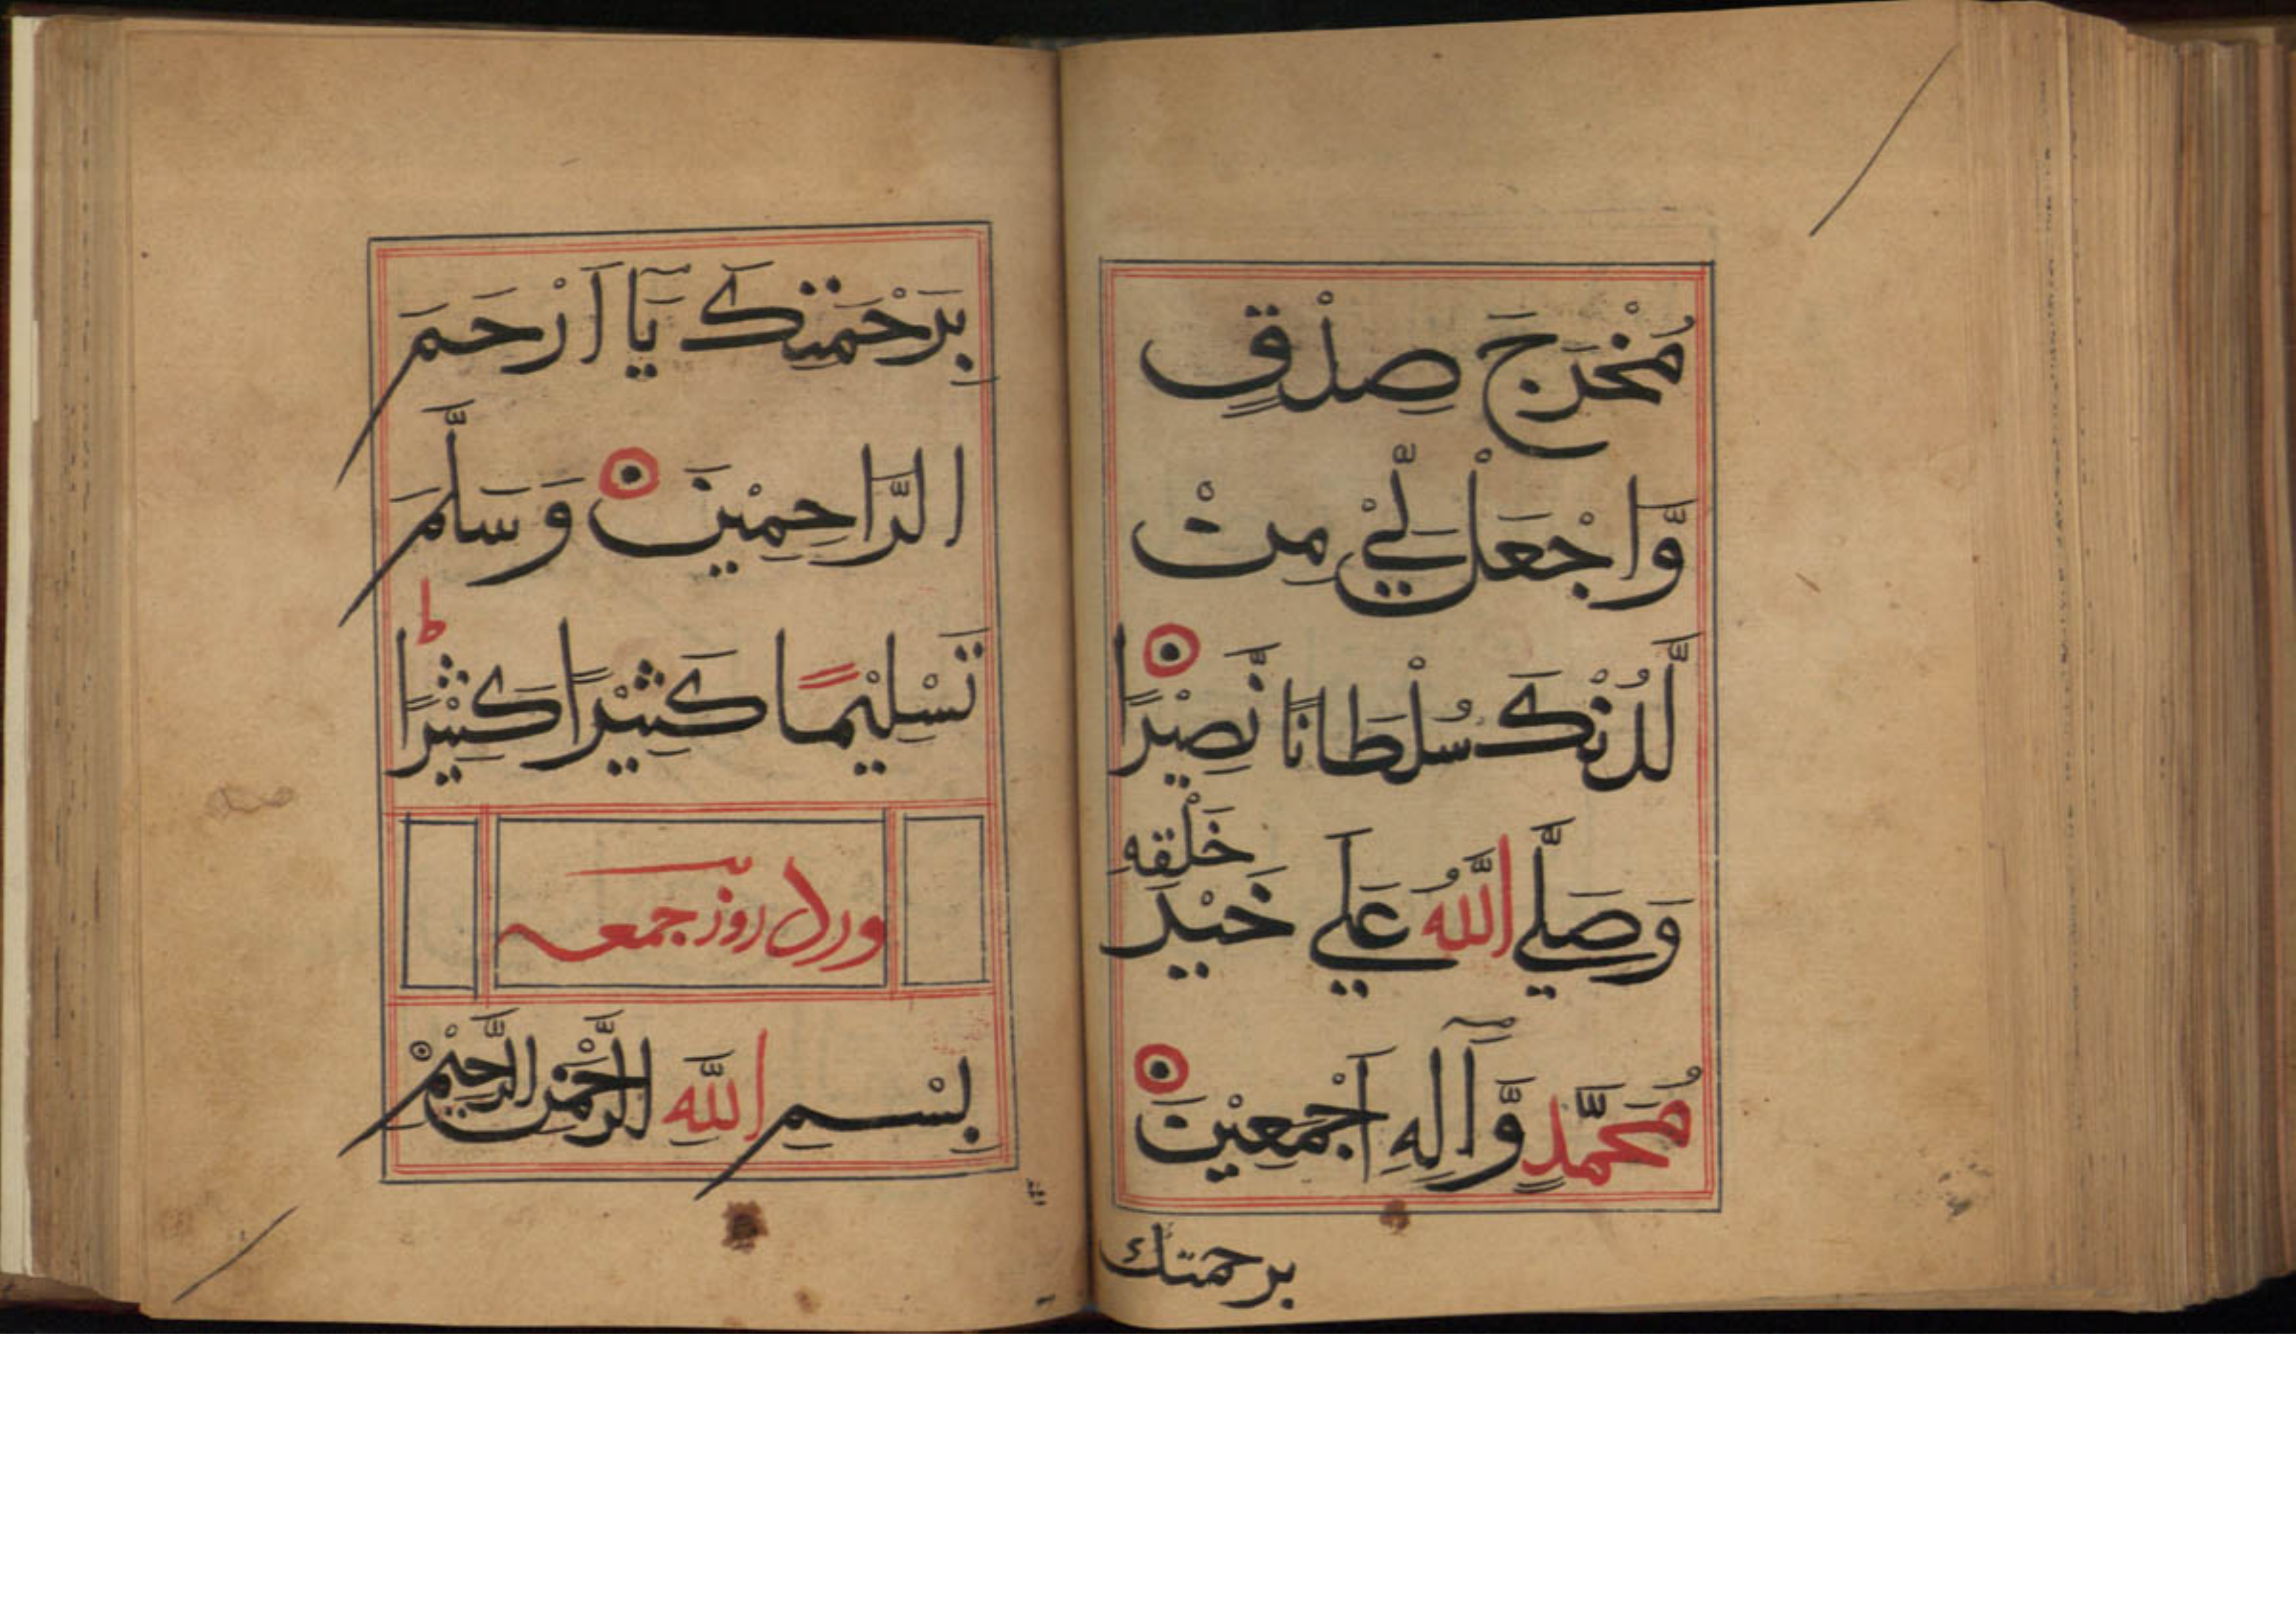 مُخْرَجَ صِدْقٍ
وَّاجْعَلْ لِّيْ مِنْ
لَّدُنْكَ سُلْطَانًا نَّصِيْرًا
وَصَلَّي اللَّهُ عَلَي خَيْرِ خَلْقِهِ
مُحَمَّدٍ وَّآلِهِ أَجْمَعِيْنَ
برحمتك
بِرَحْمَتِكَ يَآ اَرْحَمَ
الرَّاحِمِيْنَ وَسَلَّمَ
تَسْلِيْمًا كَثِيْرًا كَثِيْرًا ط
ورد روز جمعه
بِسْمِ اللَّهِ الرَّحْمٰنِ الرَّحِيْمِ